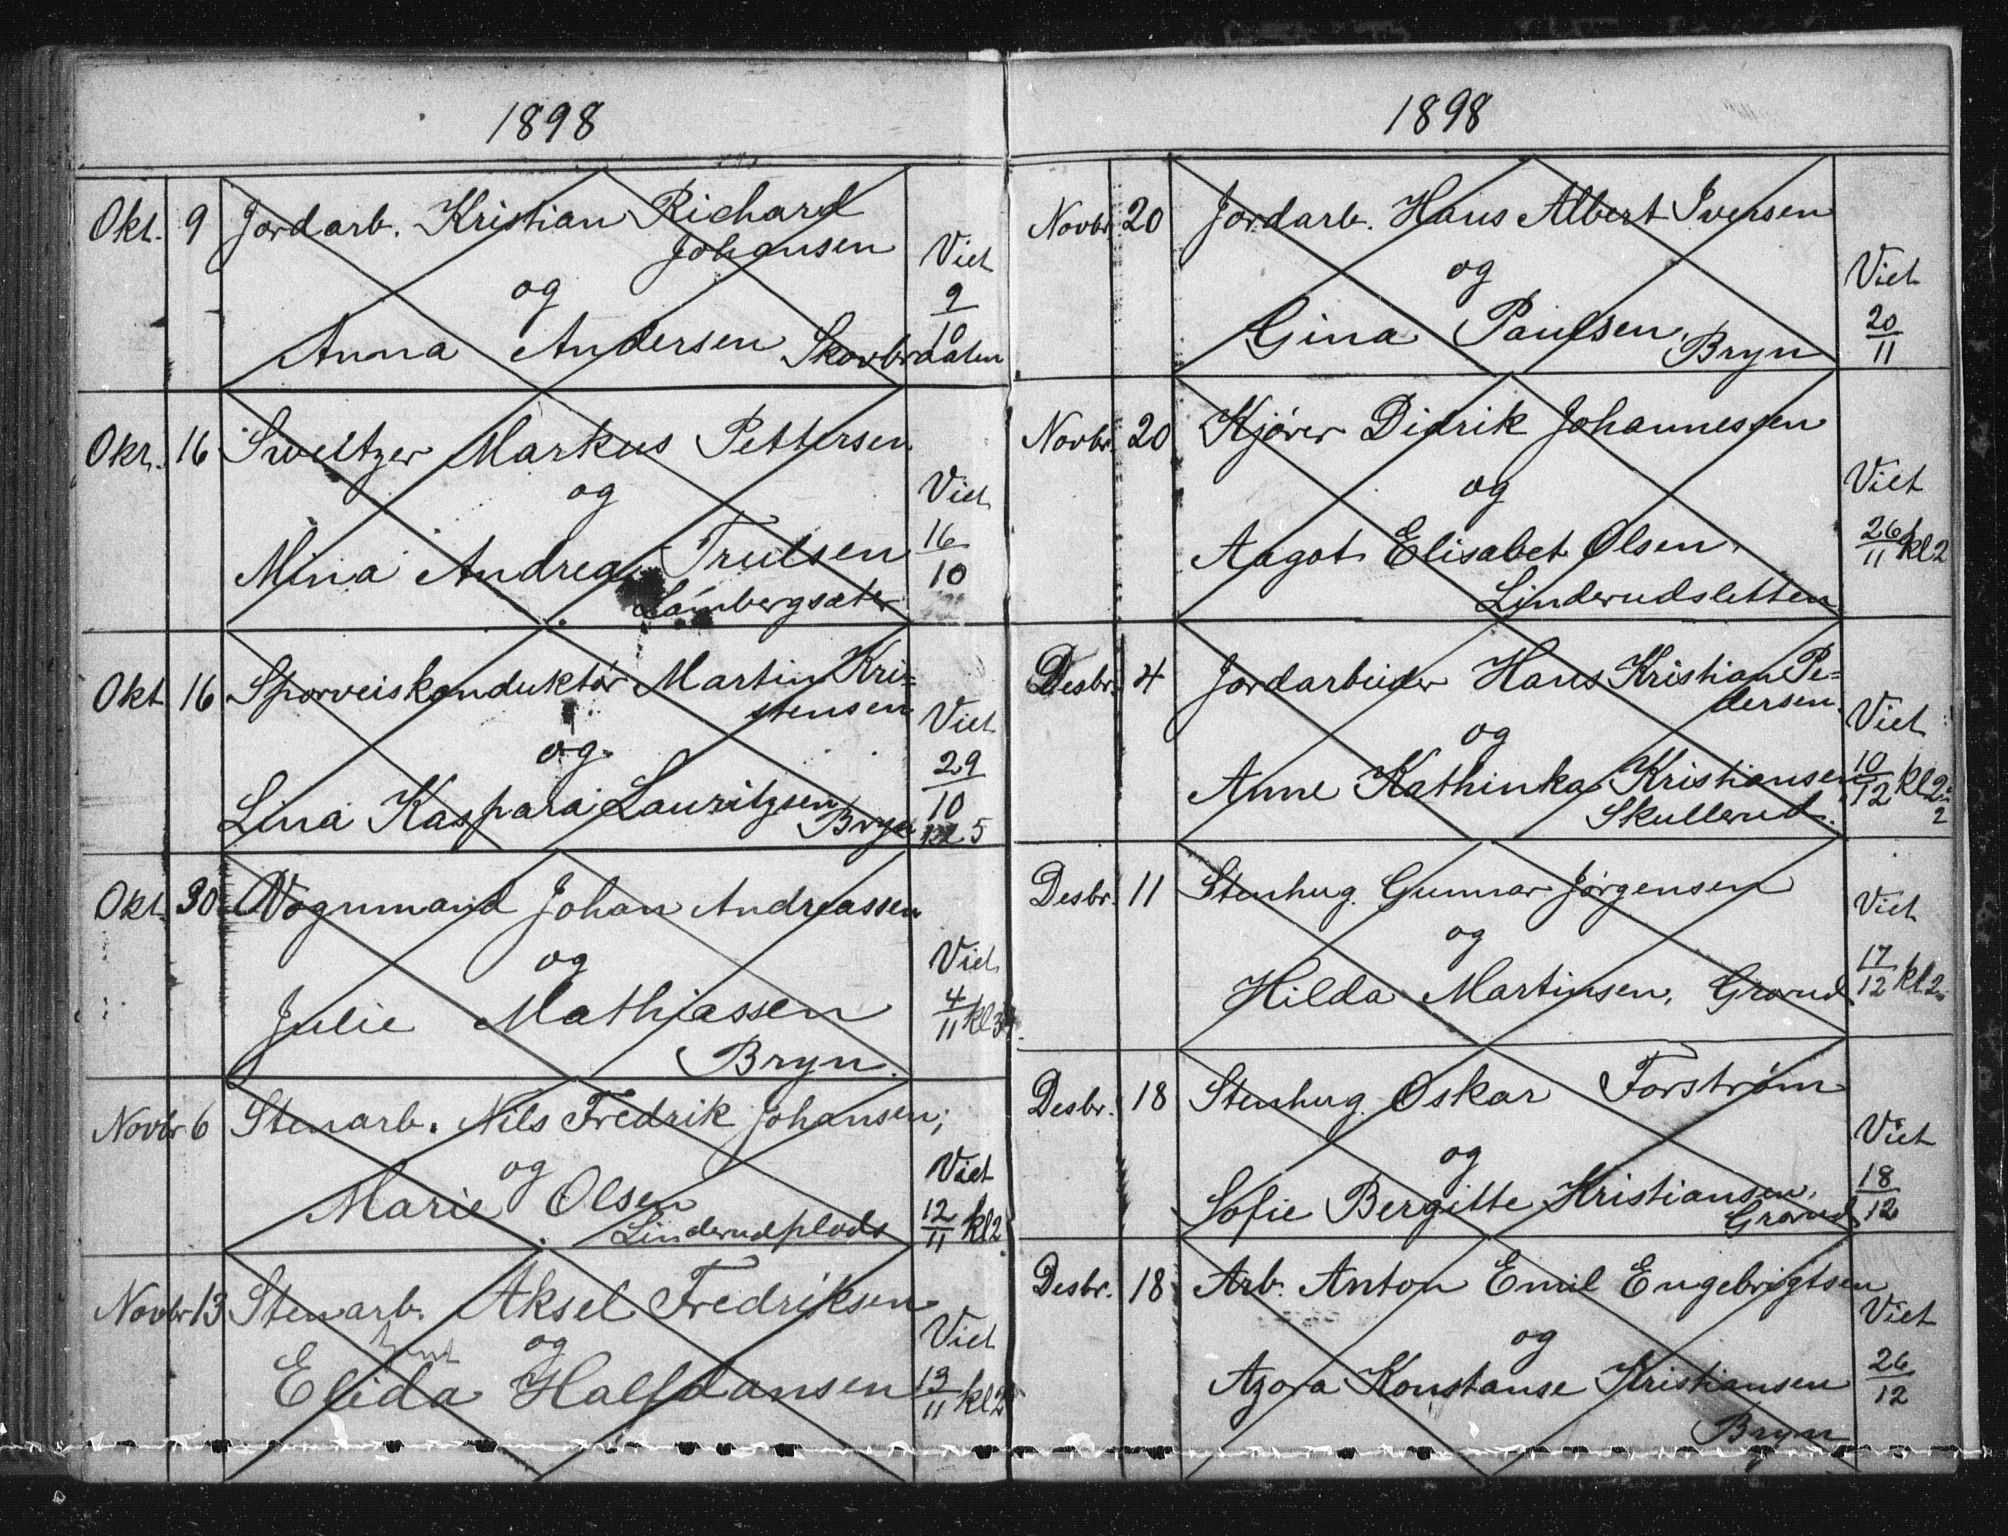 1898
Okt. 9 Jordarb. Kristian Richard
Johansen
og
Anna Andersen Skovbraaten
Viet
9
10
Okt. 16 Sveitzer Markus Pettersen
og
Mina Andrea Trulsen
Lambergsæter
Viet
16
10
Okt 16 Sporveiskonduktør Martin Kri-
stensen
og
Lina Kaspara Lauritzsen
Bryn
Viet
29
10
kl 5
Okt. 30 Vognmand Johan Andreassen
og
Julie Mathiassen
Bryn.
Viet
4
11 kl 3
Novbr 6 Stenarb. Nils Fredrik Johansen,
og
Marie Olsen
Linderudplads
Viet
12
11 kl 2
Novbr 13 Stenarb. Aksel Fredriksen
og
Elida Halfdansen
Viet
13
11 kl 2
1898
Novbr. 20 Jordarb. Hans Albert Iversen
og
Gina Paulsen,
Bryn
Viet
20
11
Novbr. 20 Kjører Didrik Johannessen
og
Aagot Elisabet Olsen,
Linderudsletten
Viet
26
11 kl 2
Desbr. 4 Jordarbeider Hans Kristian Pe-
dersen
og
Anne Kathinka Kristiansen
Skullerud.
Viet
10
12 kl 2
2
Desbr. 11 Stenhug. Gunnar Jørgensen
og
Hilda Martinsen, Grorud
Viet
17
12 kl 2
Desbr. 18 Stenhug. Oskar Forstrøm
og
Sofie Bergitte Kristiansen,
Grorud
Viet
18
12
Desbr. 18 Arb. Anton Emil Engebrigtsen
og
Azora Konstanse Kristiansen
Bryn
Viet
26
12